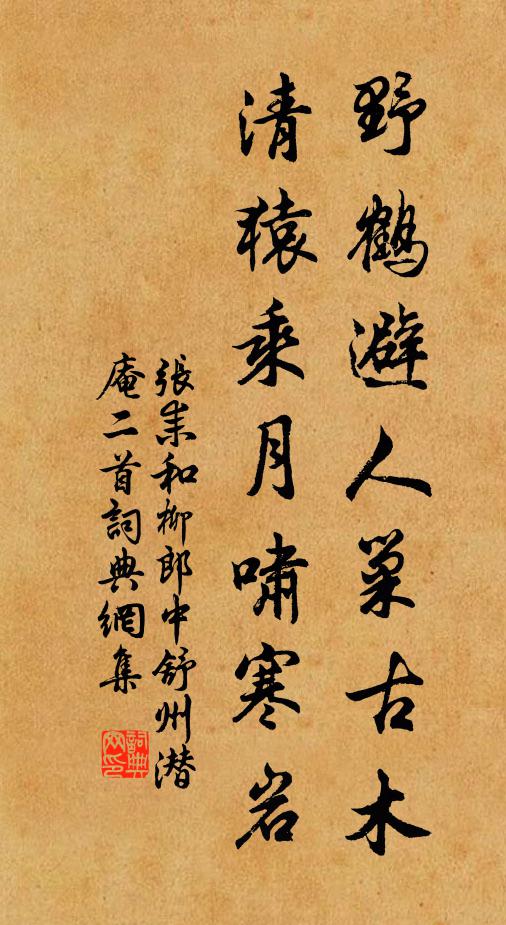 野鶴避人巢古木
清猿乘月嘯寒岩
張耒和柳郎中舒州潜
庵二首詞典網集
詞典
网印